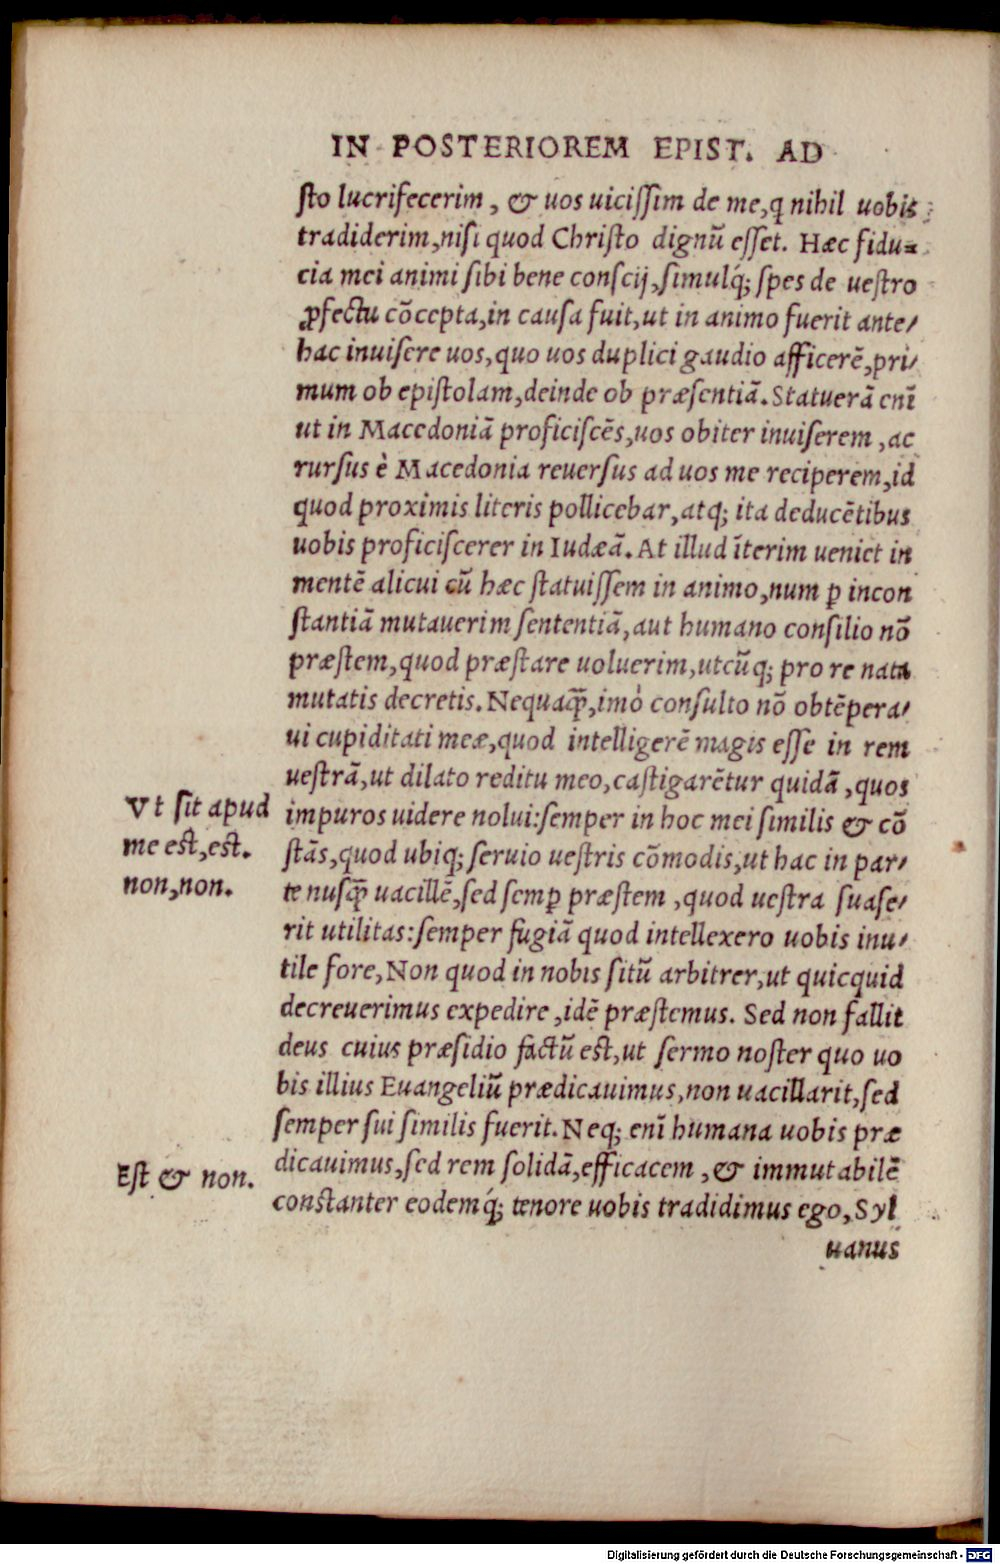 IN POSTERIOREM EPIST. AD
ſto lucrifecerim, & uos uiciſſim de me, q nihil uobis
tradiderim, niſi quod Chriſto dignū eſſet. Hæc fidu=
cia mei animi ſibi bene conſcij, ſimulq́; ſpes de ueſtro
ꝓfectu cōcepta, in cauſa fuit, ut in animo fuerit ante/
hac inuiſere uos, quo uos duplici gaudio afficerē, pri/
mum ob epiſtolam, deinde ob præſentiā. Statuerā enī
ut in Macedoniā proficiſcēs, uos obiter inuiſerem, ac
rurſus è Macedonia reuerſus ad uos me reciperem, id
quod proximis literis pollicebar, atq; ita deducētibus
uobis proficiſcerer in Iudæā. At illud īterim ueniet in
mentē alicui cū hæc ſtatuiſſem in animo, num ꝑ incon
ſtantiā mutauerim ſententiā, aut humano conſilio nō
præſtem, quod præſtare uoluerim, utcūq; pro re nata
mutatis decretis. Nequaꝙ̄, imò conſulto nō obtēpera/
ui cupiditati meæ, quod intelligerē magis eſſe in rem
ueſtrā, ut dilato reditu meo, caſtigarētur quidā, quos
impuros uidere nolui: ſemper in hoc mei ſimilis & cō
ſtās, quod ubiq; ſeruio ueſtris cōmodis, ut hac in par/
te nuſꝙ̄ uacillē, ſed ſemꝑ præſtem, quod ueſtra ſuaſe/
rit utilitas: ſemper fugiā quod intellexero uobis inu/
tile fore, Non quod in nobis ſitū arbitrer, ut quicquid
decreuerimus expedire, idē præſtemus. Sed non fallit
deus cuius præſidio factū eſt, ut ſermo noſter quo uo
bis illius Euangeliū prædicauimus, non uacillarit, ſed
ſemper ſui ſimilis fuerit. Neq; enī humana uobis præ
dicauimus, ſed rem ſolidā, efficacem, & immutabilē
conſtanter eodemq́; tenore uobis tradidimus ego, Syl
uanus
Vt ſit apud
me eſt, eſt.
non, non.
Eſt & non.
Digitalisierung gefördert durch die Deutsche Forschungsgemeinschaft - DFG